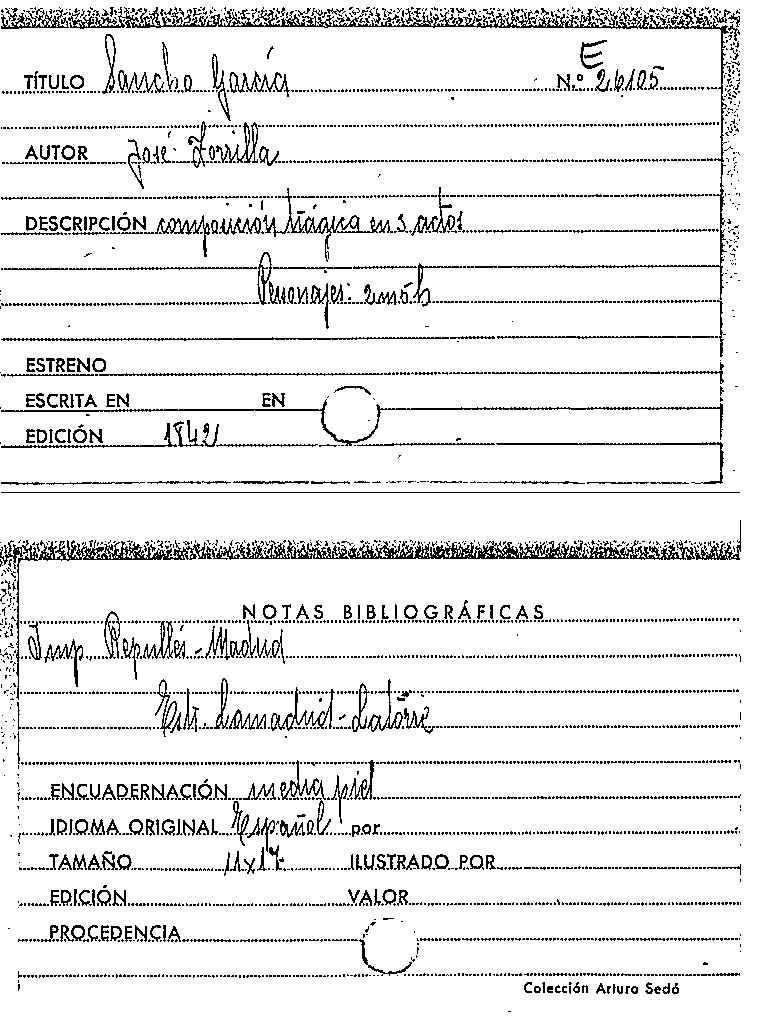 E
TÍTULO Sancho García N.º 26105
AUTOR José Zorrilla
DESCRIPCIÓN composición trágica en 3 actos
Personajes: 2m5h
ESTRENO
ESCRITA EN EN
EDICIÓN 1842
NOTAS BIBLIOGRÁFICAS
Imp. Repullés - Madrid
Estr. Lamadrid - Latorre
ENCUADERNACIÓN media piel
IDIOMA ORIGINAL Español por
TAMAÑO 11x17 ILUSTRADO POR
EDICIÓN VALOR
PROCEDENCIA
Colección Arturo Sedó